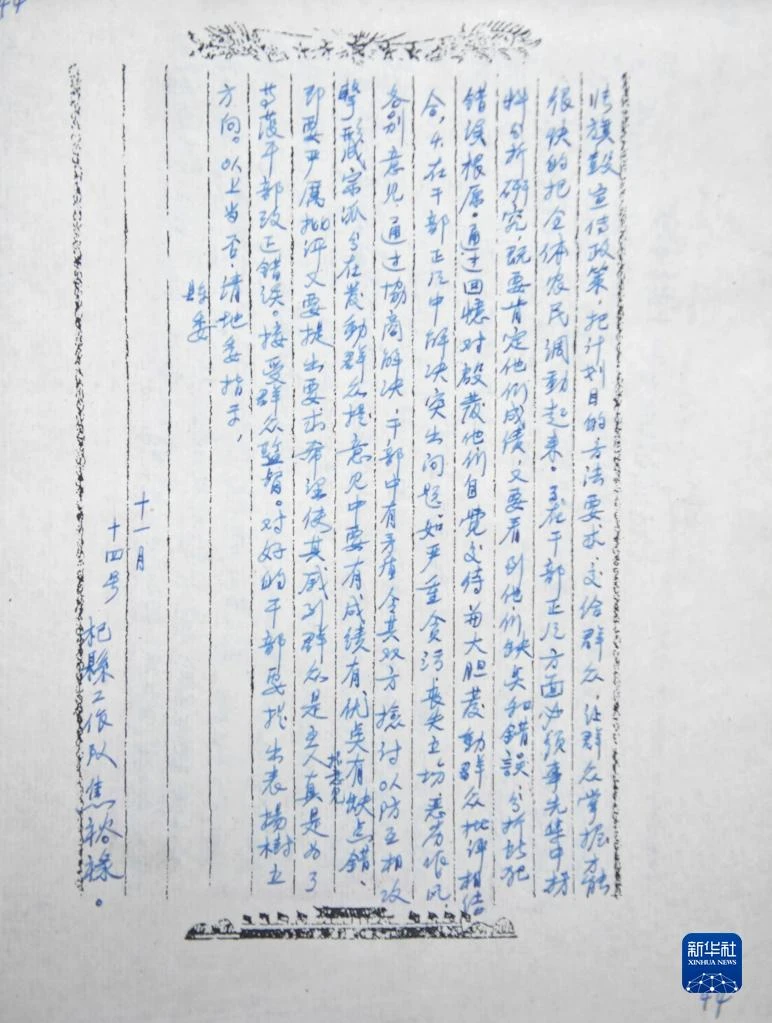 44
旗鼓宣传政策，把计划目的方法要求，交给群众，让群众掌握才能
很快的把全体农民调动起来。3在干部正风方面必须事先集中材
料分析研究，既要肯定他们成绩，又要看到他们缺点和错误，分析其犯
错误根原。通过回憶对啟发他们自觉交待，和大胆发動群众批评相结
合，4.在干部正风中解决突出问题，如严重贪污，丧失立场，恶劣作风，
各别意见，通过协商解决，干部中有矛盾，令其双方检讨以防互相攻
擊形成宗派，5在发動群众提意见中要有成绩有优点有缺点错，
即要严厲批评又要提出要求希望使其感到群众是主人真是为了
批意见
干部改正错误。接受群众监督。对好的干部要提出表揚樹立
方向。以上当否，请地委指示，
县委
十一月
十四号 杞縣工作队焦裕祿。
新华社
XINHUA NEWS
44